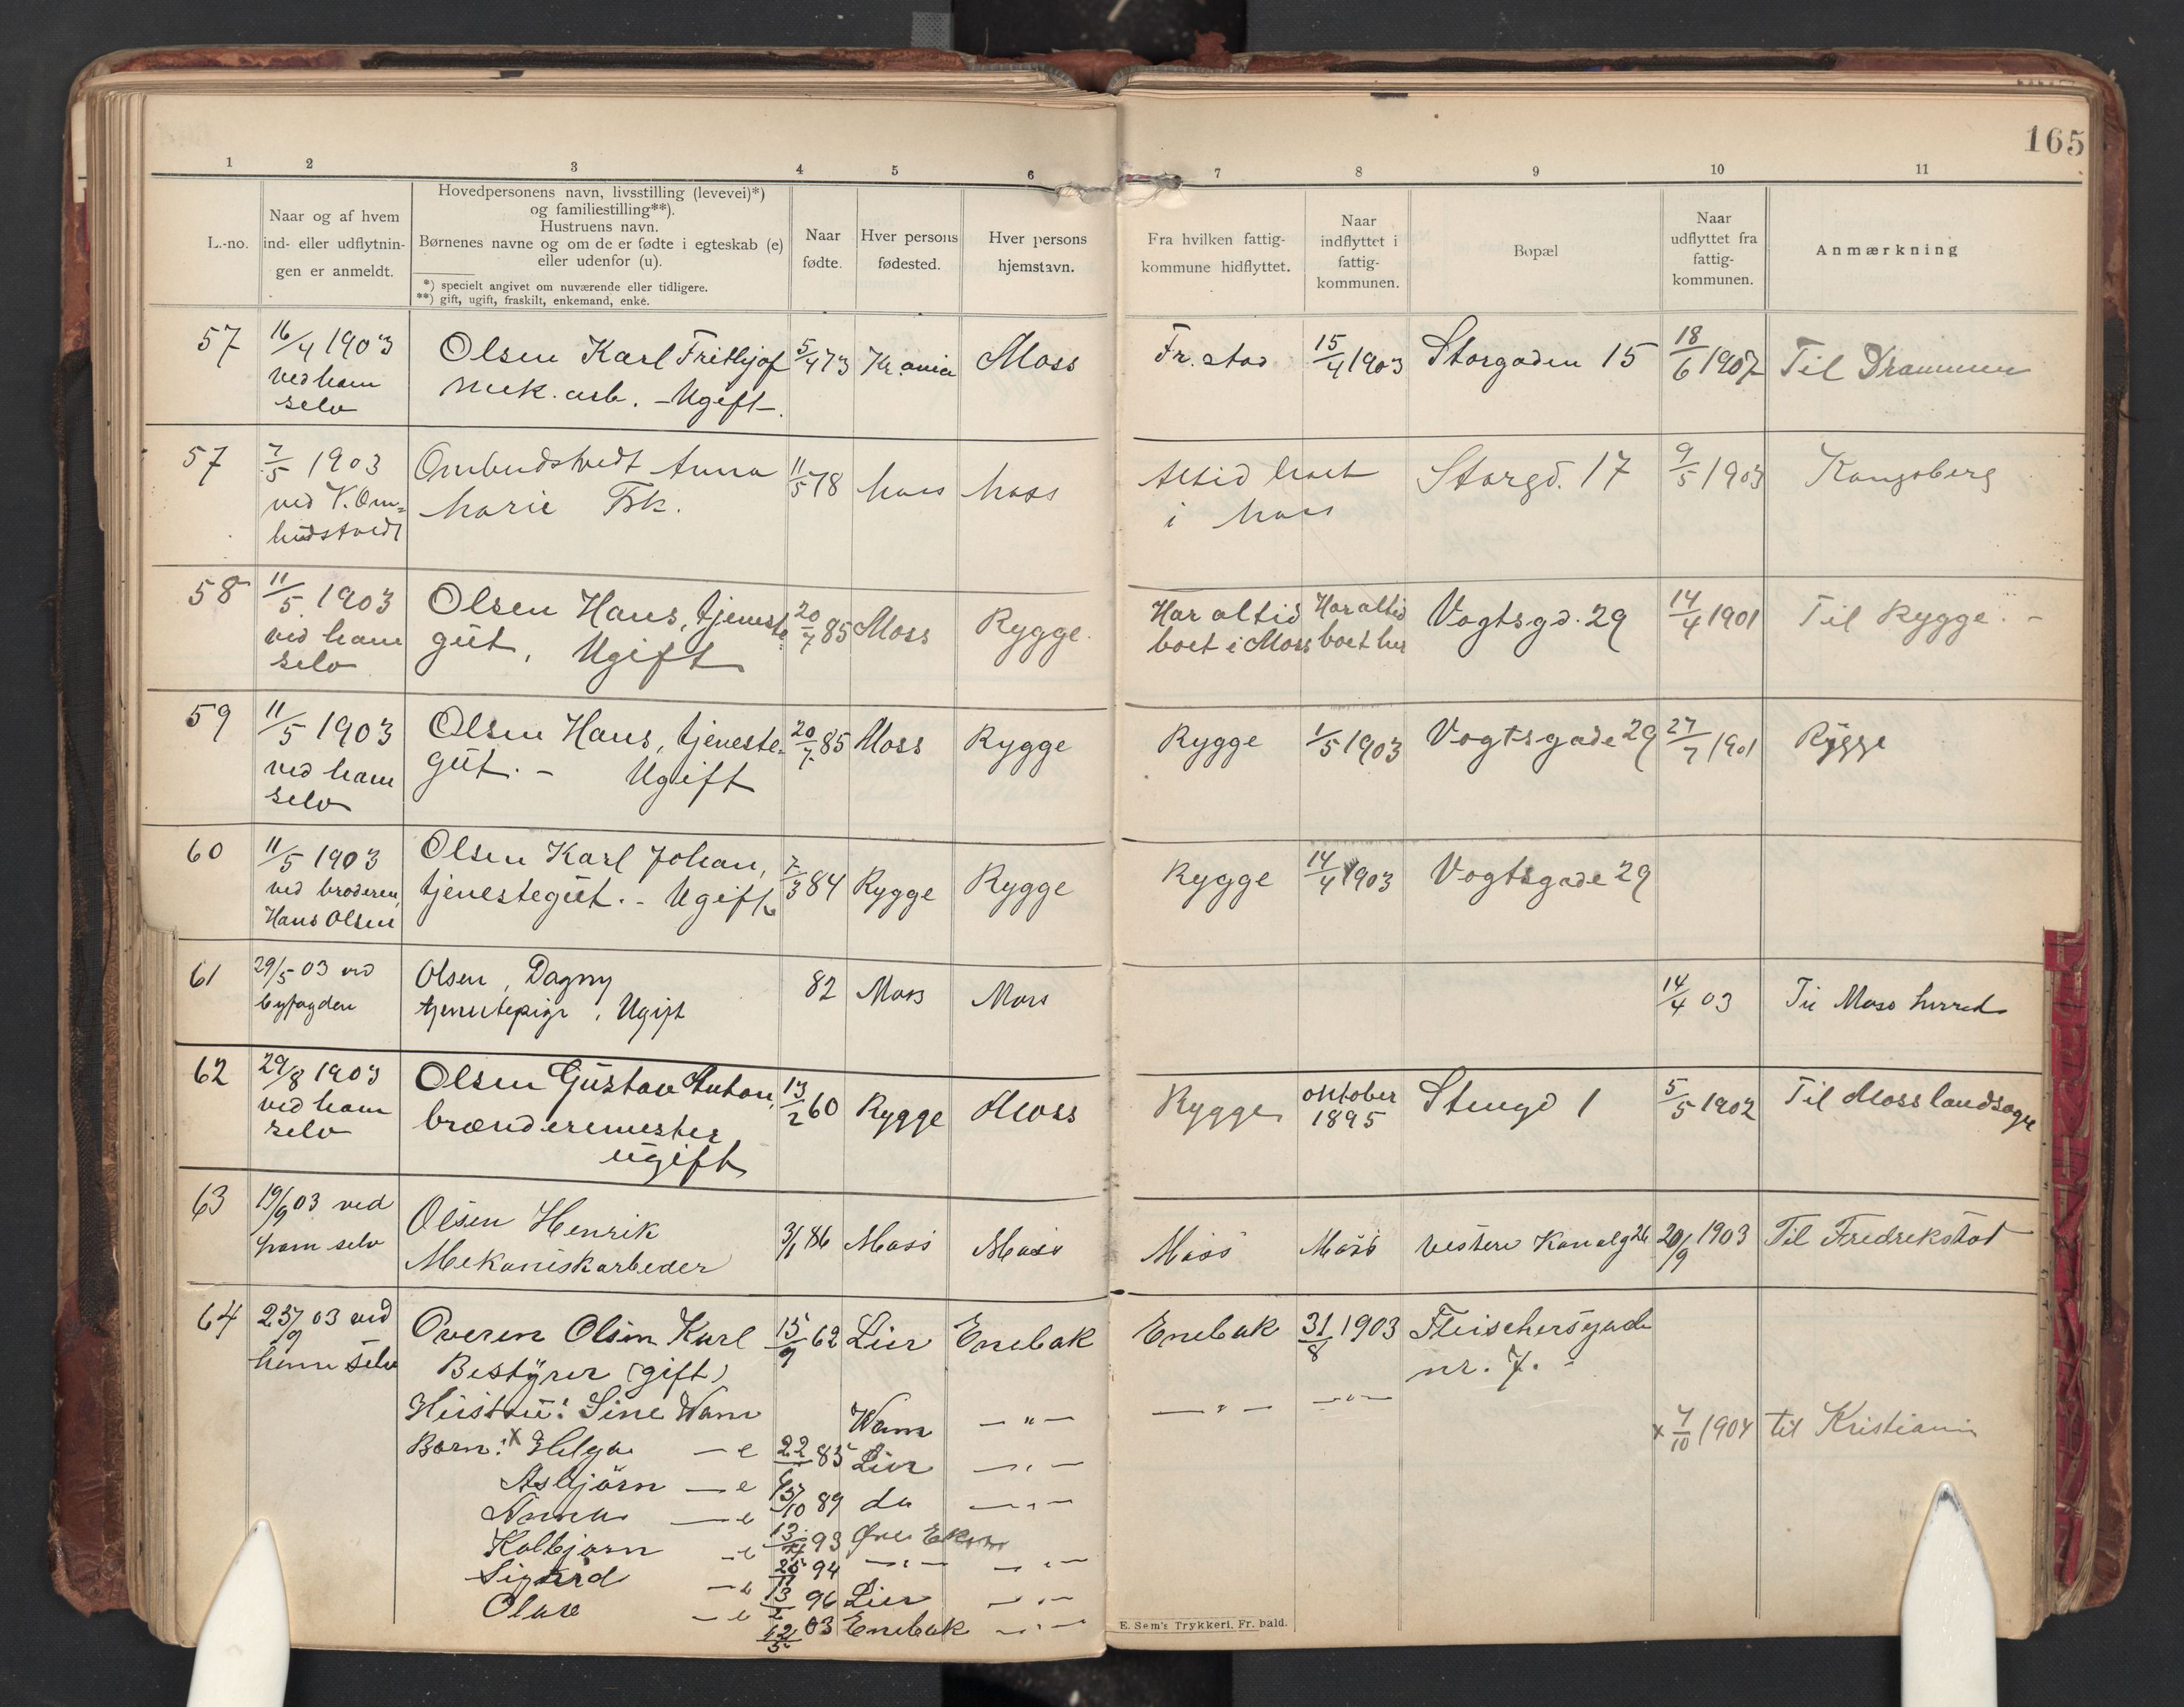 165
1 2 3 4 5 6 7 8 9 10 11
L.-no.
Naar og af hvem
ind- eller udflytnin-
gen er anmeldt.
Hovedpersonens navn, livsstilling (levevei)*)
og familiestilling**).
Hustruens navn.
Børnenes navne og om de er fødte i egteskab (e)
eller udenfor (u).
*) specielt angivet om nuværende eller tidligere.
**) gift, ugift, fraskilt, enkemand, enke.
Naar
fødte.
Hver persons
fødested.
Hver persons
hjemstavn.
Fra hvilken fattig-
kommune hidflyttet.
Naar
indflyttet i
fattig-
kommunen.
Bopæl
Naar
udflyttet fra
fattig-
kommunen.
Anmærkning
57 16/4 1903 Olsen Karl Frithjof 5/4 73 Kr.ania Moss Fr.stad 15/4 1903 Storgaden 15 18/6 1907 Til Drammen
ved ham mek. arb. - Ugift -.
selv
57 7/5 1903 Ombudstvedt Anna 11/5 78 Moss Moss Altid boet Storgd. 17 9/5 1903 Kongsberg
ved K. Om= Marie Frk. i Moss
budstvedt
58 11/5 1903 Olsen Hans, tjeneste 20/7 85 Moss Rygge. Har altid Har altid Vogtsgd. 29 14/4 1901 Til Rygge. -
ved ham gut, Ugift boet i Moss boet her
selv
59 11/5 1903 Olsen Hans, tjeneste- 20/7 85 Moss Rygge Rygge 1/5 1903 Vogtsgade 29 27/7 1901 Rygge
ved ham gut. - Ugift
selv
60 11/5 1903 Olsen Karl Johan, 7/3 84 Rygge Rygge Rygge 14/4 1903 Vogtsgade 29
ved broderen, tjenestegut. - Ugift
Hans Olsen
61 29/5 03 ved Olsen, Dagny 82 Moss Moss 14/4 03 Til Moss herred
byfogden tjenestepige, Ugift
62 29/8 1903 Olsen Gustav Anton, 13/2 60 Rygge Moss Rygge oktober Stengd 1 5/5 1902 Til Moss landsogn
ved ham brænderimester 1895
selv ugift
63 19/9 03 ved Olsen Henrik 3/1 86 Moss Moss Moss Moss Vestere Kanalg 26 20/9 1903 Til Fredrikstad
ham selv Mekaniskarbeder
64 23/9 03 ved Overen Olsen Karl 15/9 62 Lier Enebak Enebak 31/8 1903 Fleischersgade
ham selv Bestyrer (gift) nr. 7. -
Hustru: Sine Wam Wam - " - - " - - " -
Barn: x Helga - e 22/6 85 Lier - " - x 7/10 1904 til Kristiania
Asbjørn - e 13/10 89 do - " -
Anna - e 13/4 93 Øvre Eker
Kolbjørn - e 25/11 94 - " - - " -
Sigurd - e 13/2 96 Lier - " -
Oluse - e 12/5 03 Enebak - " -
E. Sem's Trykkeri, Fr. hald.